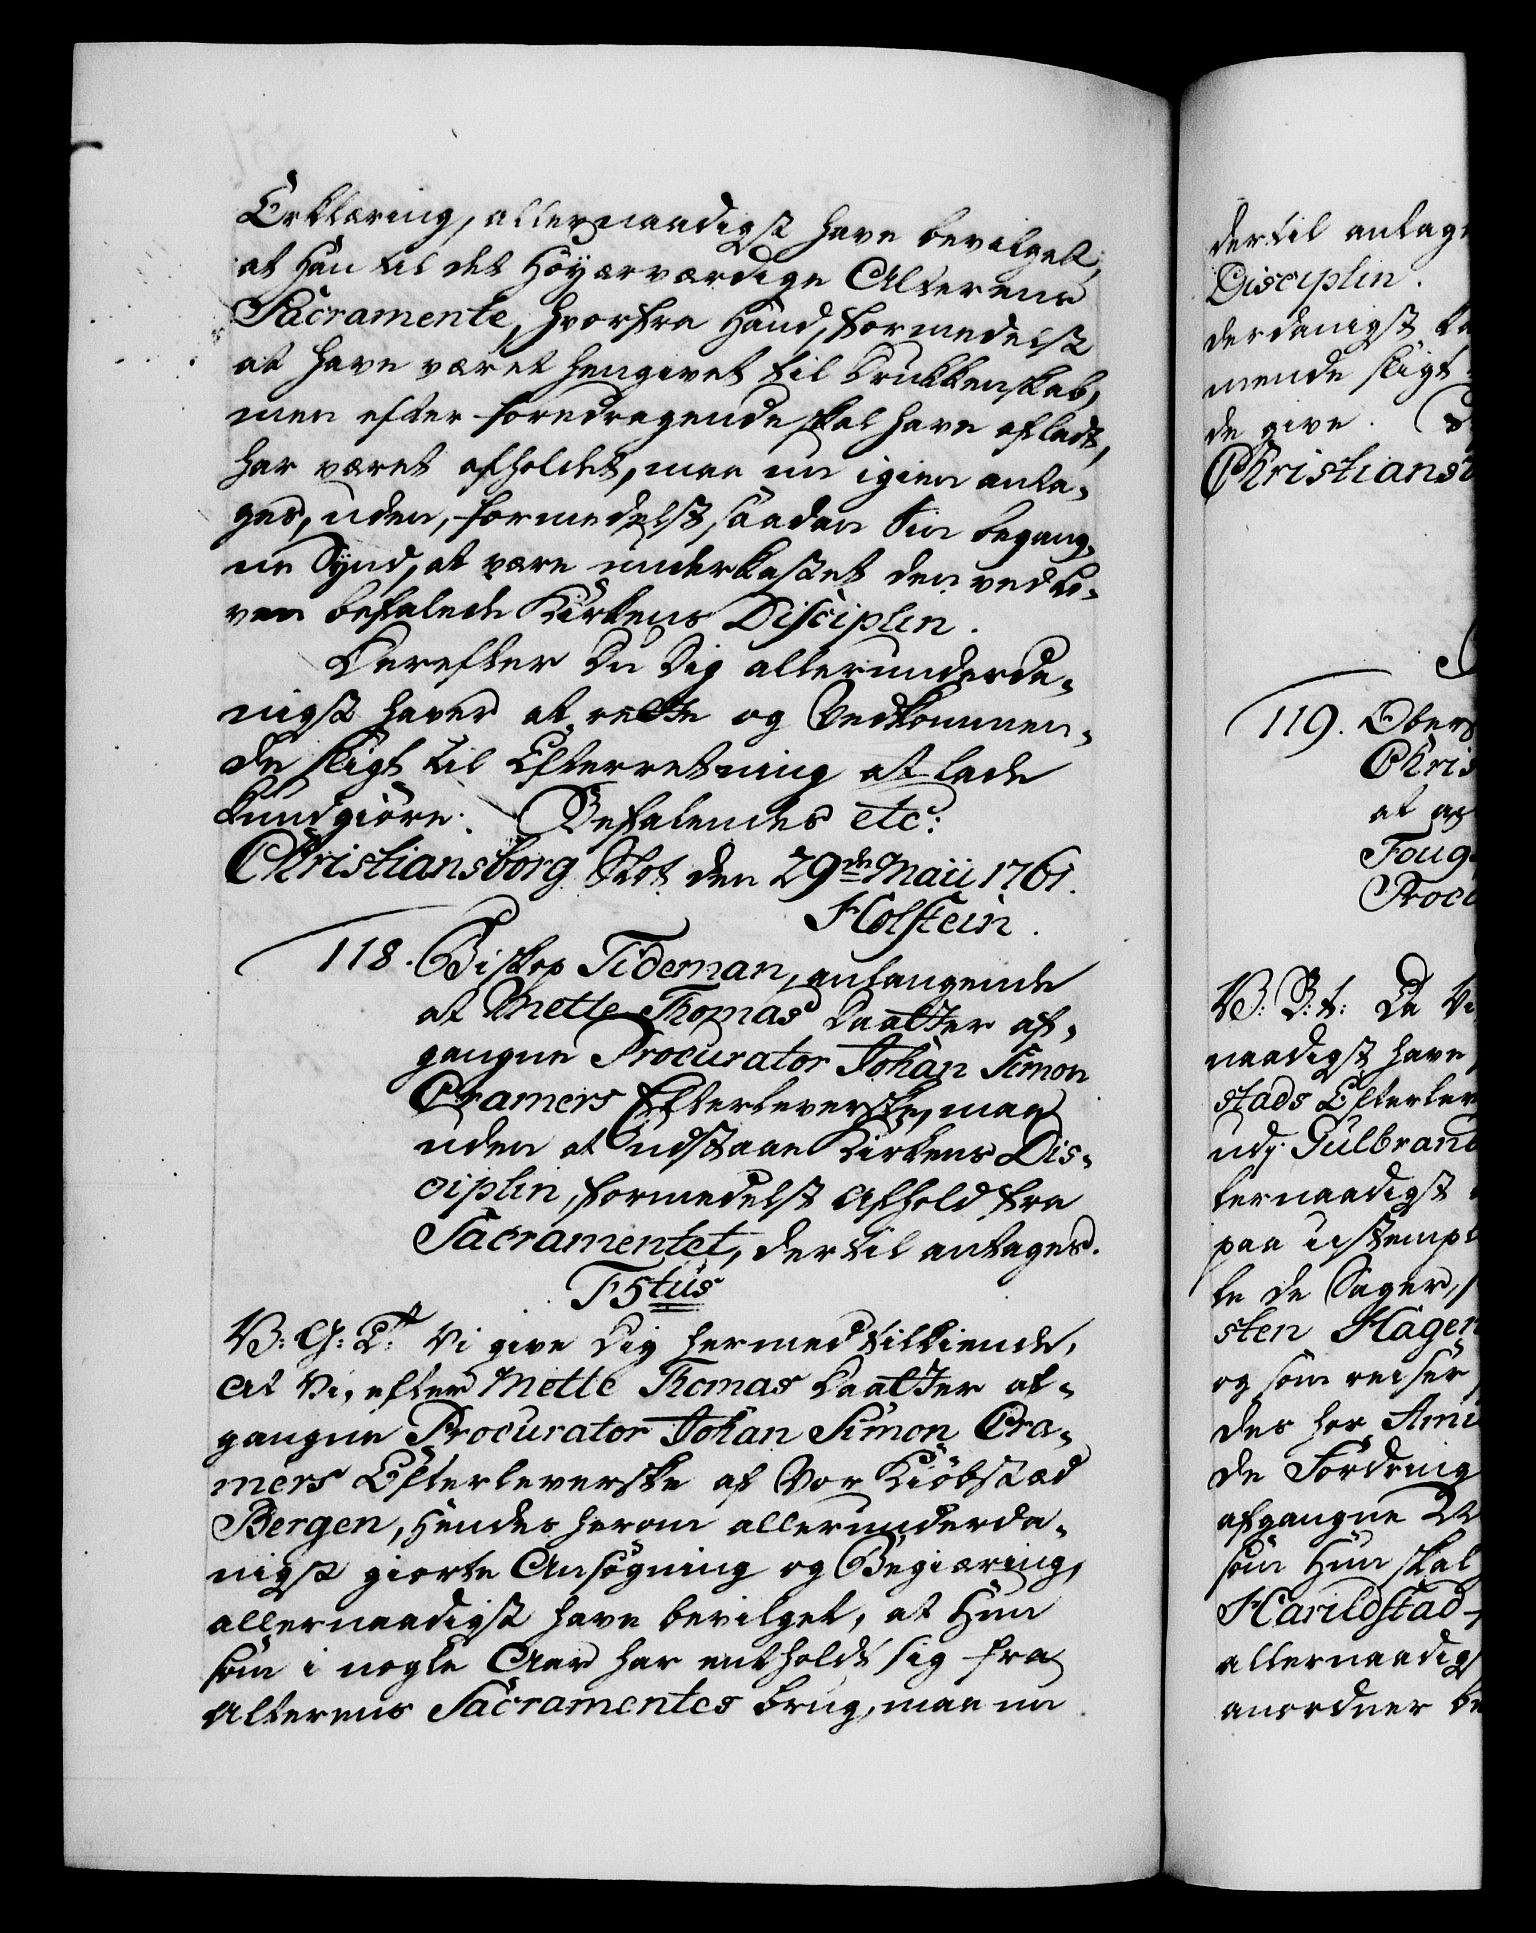 Erklæring, allernaadigst have bevilget,
at Han til det Høyærværdige Alterens
Sacramente, hvorfra Hand, formedelst
at have været hengivet til Drukkenskab,
men efter foredragende skal have afladt,
har været afholdet, maa nu igien anta-
ges, uden, formedelst saadan Sin begang-
ne Synd, at være underkastet den ved Lo-
ven befalede Kirkens Disciplin.
Derefter Du Dig allerunderda-
nigst haver at rette og Vedkommen-
de sligt til Efterretning at lade
kundgiöre. Befalendes etc:
Christiansborg Slot den 29de Maii 1761.
Holstein.
118. Biskop Tideman, anlangende
at Mette Thomas Daatter af-
gangne Procurator Johan Simon
Cramers Efterleverske, maa
uden at udstaae Kirkens Dis-
ciplin, formedelst Afhold fra
Sacramentet, dertil antages.
F5tus
V: G: T: Vi give Dig hermed tilkiende,
At Vi, efter Mette Thomas Daatter af-
gangne Procurator Johan Simon Cra-
mers Efterleverske af Vor Kiöbstæd
Bergen, Hendes herom allerunderda-
nigst giorte Ansøgning og Begiæring,
allernaadigst have bevilget, at Hun
som i nogle Aar har entholdt sig fra
Alterens Sacramentes brug, maa nu
dertil antag
Disciplin.
derdanigst
mende sligt
de give.
Christians
119. Obers
Chris
at
Foug
Proc
V: B: t: Da Vi
naadigst have
stads Efterlev
udj Gulbrand
lernaadigst
paa ustempl
le de Sager,
sten Hagen
og som reiser
des hos Ami
de Fordring
afgangne
som Hun skal
Harildstad
allernaadigs
anordner be